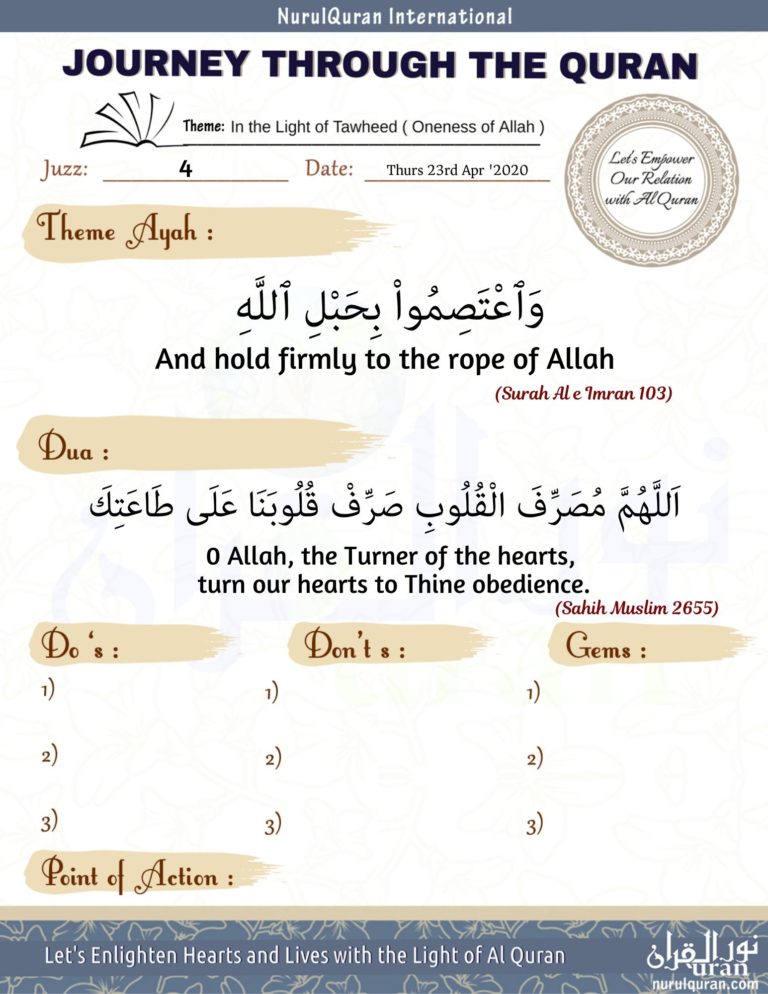 NurulQuran International
JOURNEY THROUGH THE QURAN
Theme: In the Light of Tawheed ( Oneness of Allah )
Juzz: 4 Date: Thurs 23rd Apr '2020
Let's Empower
Our Relation
with Al Quran
Theme Ayah :
وَٱعْتَصِمُوا۟ بِحَبْلِ ٱللَّهِ
And hold firmly to the rope of Allah
(Surah Al e Imran 103)
Dua :
اَللَّهُمَّ مُصَرِّفَ الْقُلُوبِ صَرِّفْ قُلُوبَنَا عَلَى طَاعَتِكَ
O Allah, the Turner of the hearts,
turn our hearts to Thine obedience.
(Sahih Muslim 2655)
Do 's : Don't s : Gems :
1) 1) 1)
2) 2) 2)
3) 3) 3)
Point of Action :
Let's Enlighten Hearts and Lives with the Light of Al Quran
نور القرآن
uran
nurulquran.com